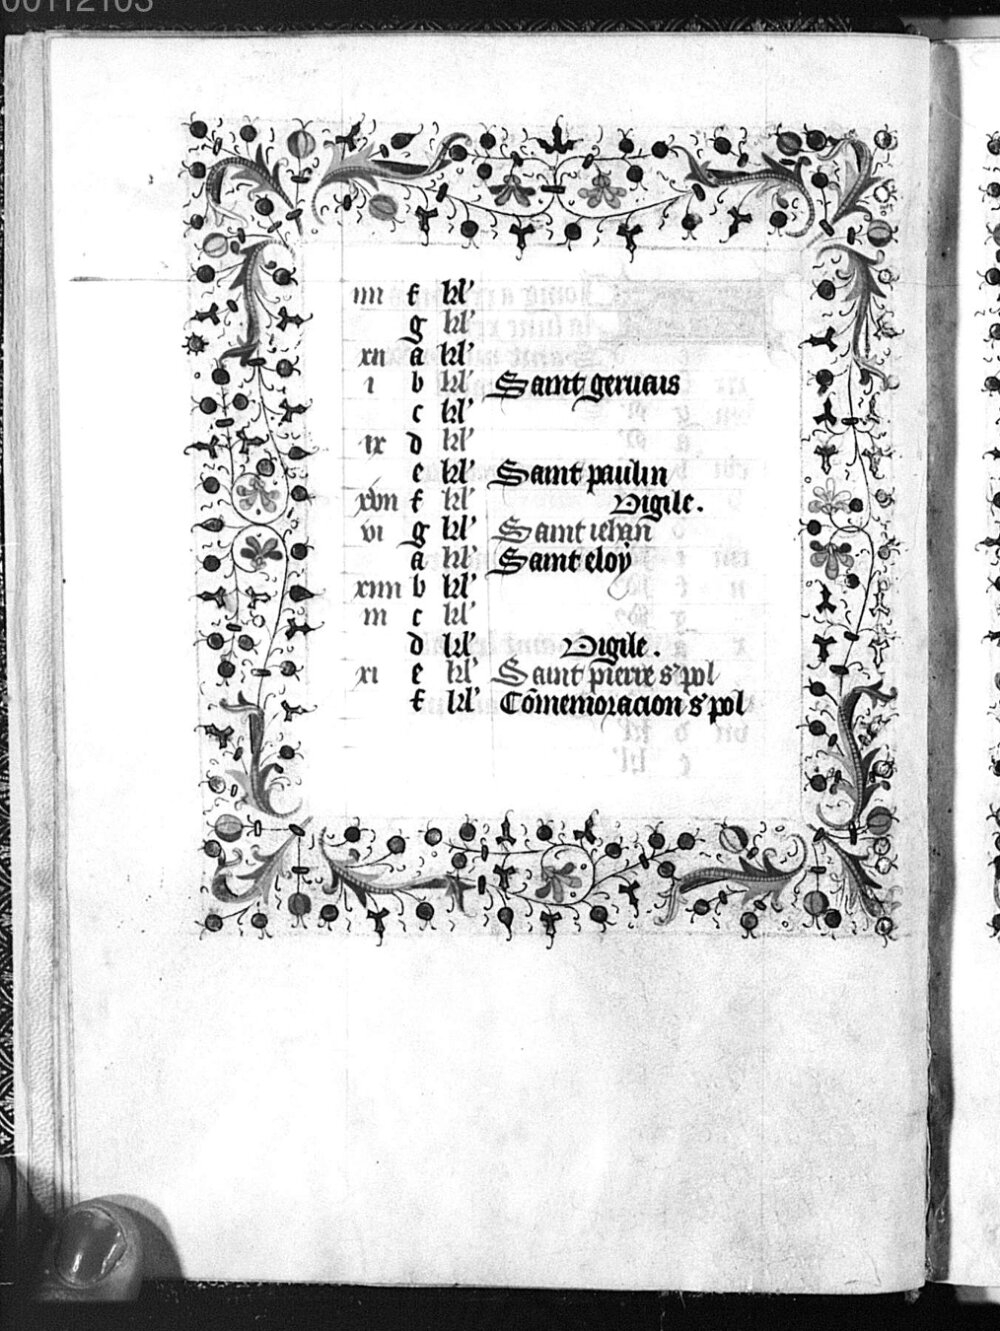 00112103
iiii f kl'
g kl'
xii a kl'
i b kl' Saint geruais
c kl'
ix d kl'
e kl' Saint paulin
xvii f kl' Vigile.
vi g kl' Saint iehan
a kl' Saint eloy
xiiii b kl'
iii c kl'
d kl' Vigile.
xi e kl' Saint pierre s' pol
f kl' Cõmemoracion s' pol